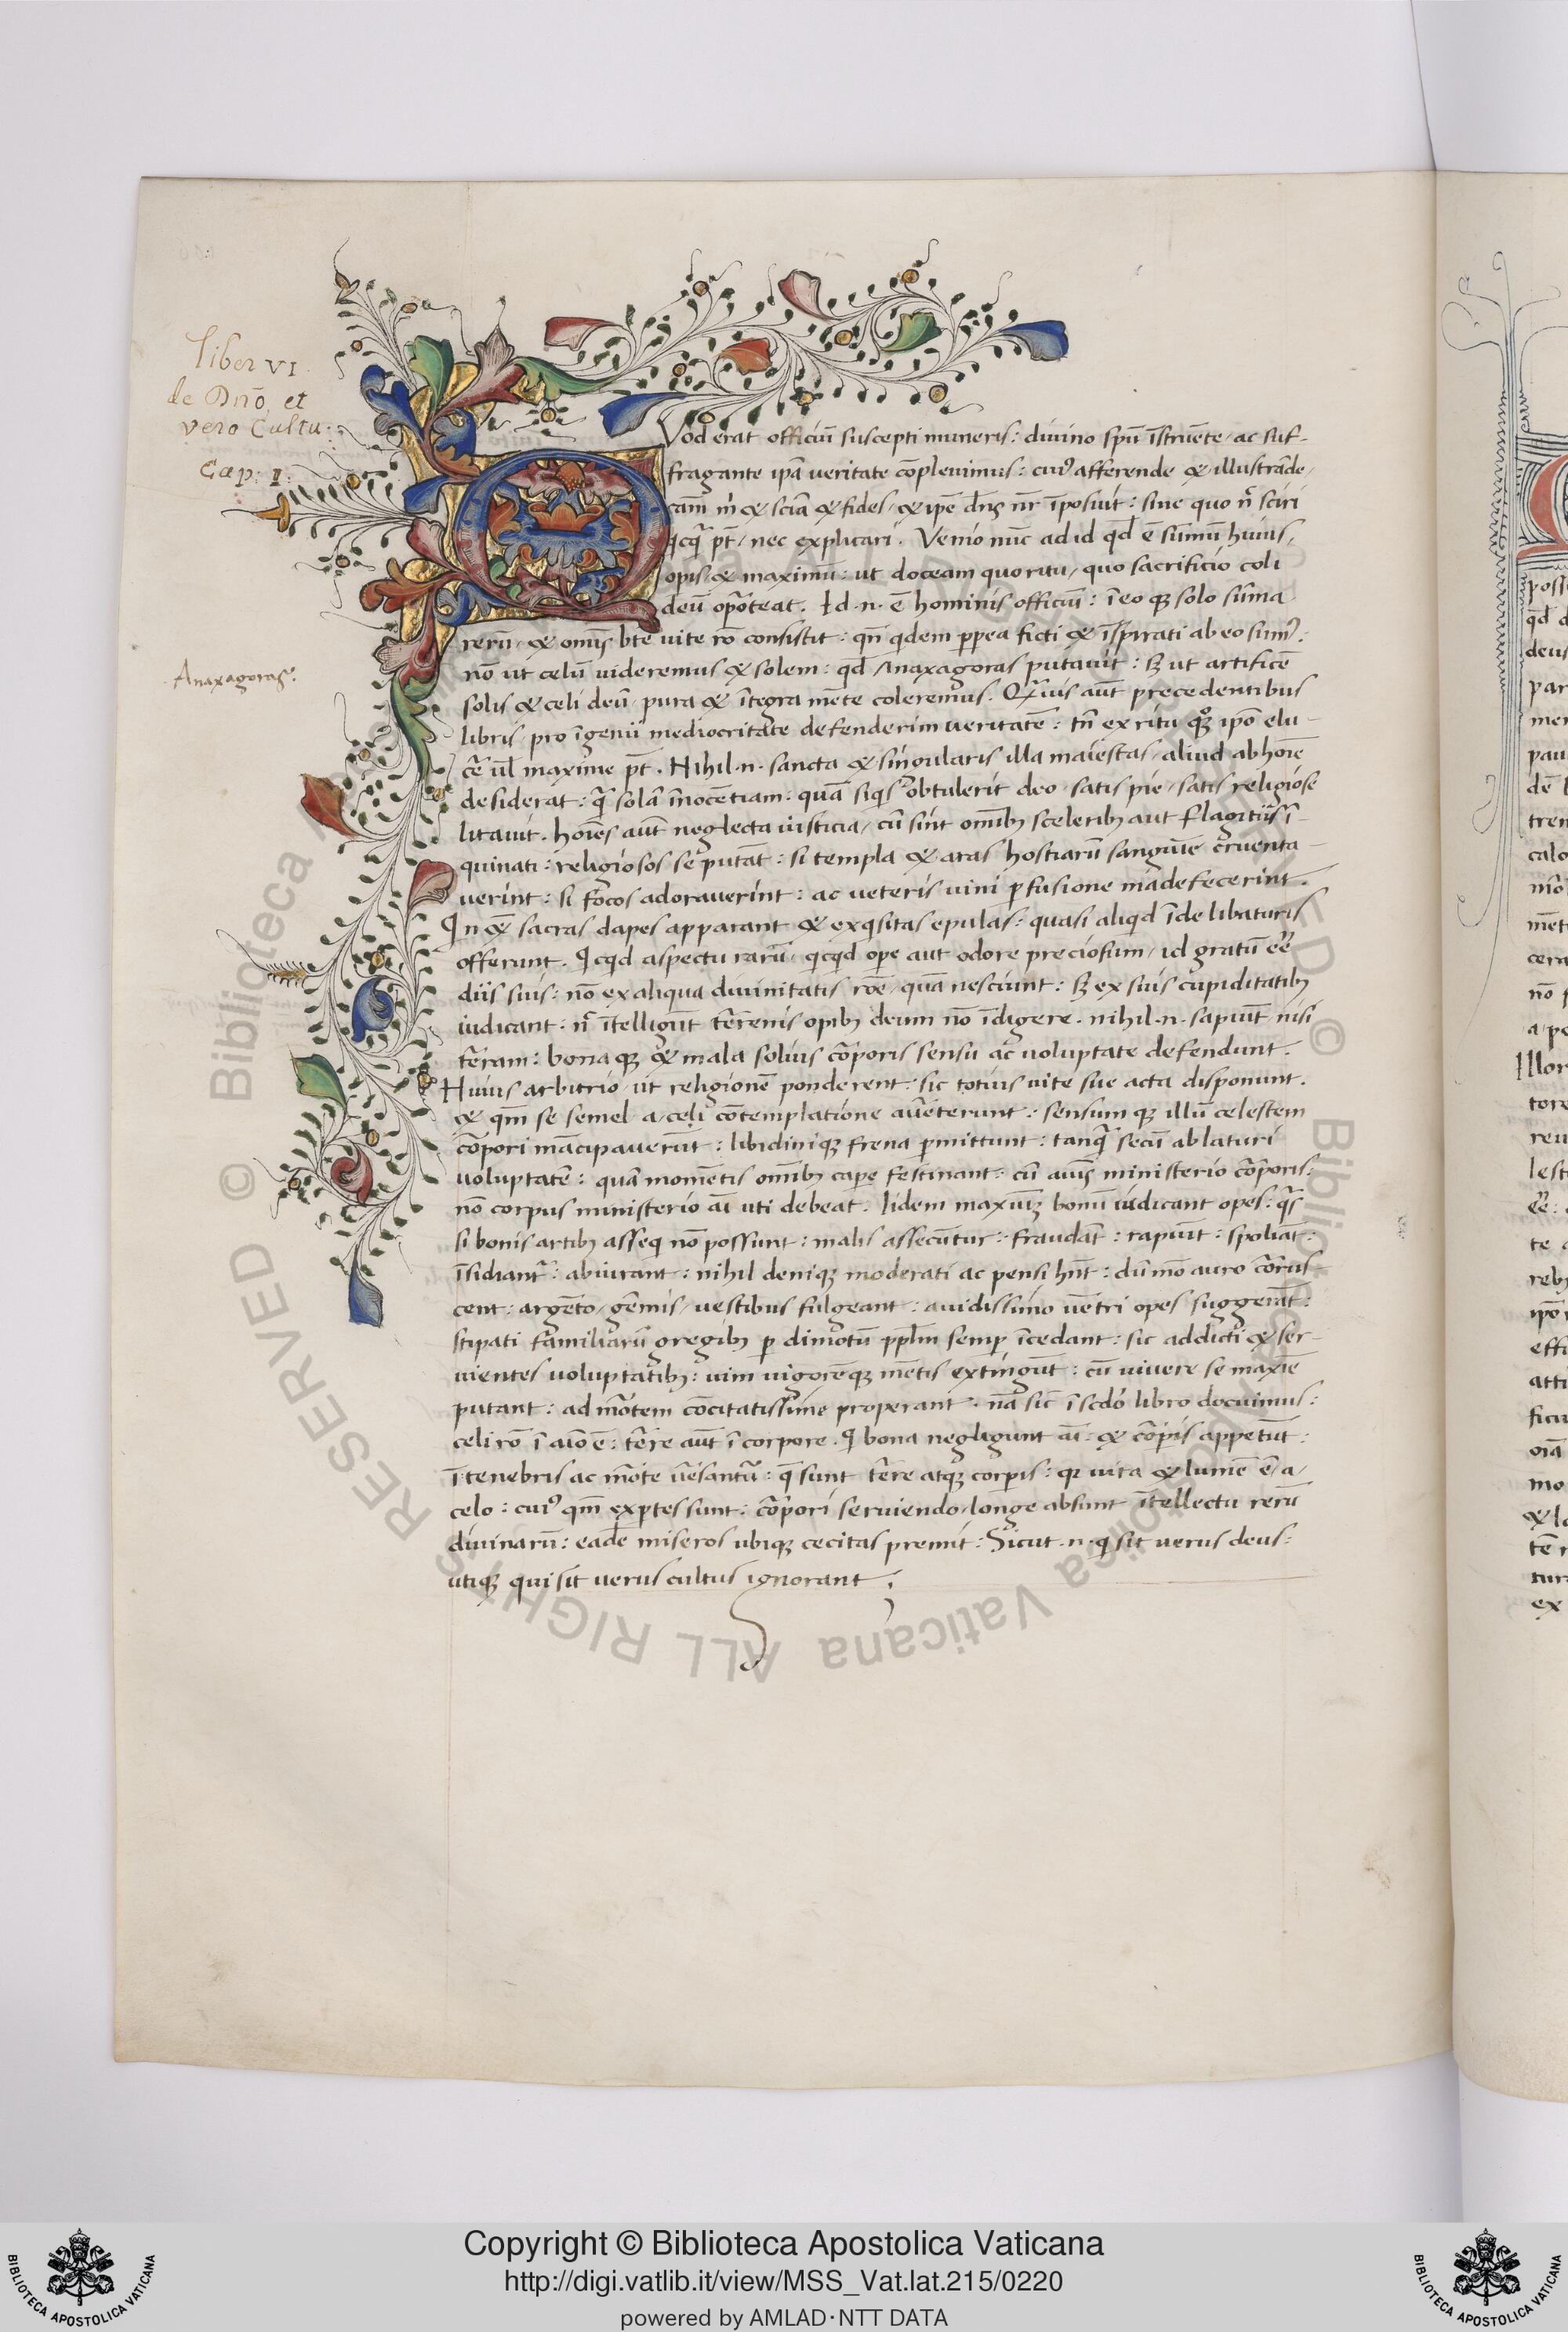 Liber VI.
de Dño, et
vero Cultu.
Cap: I.
QVod erat officiū suscepti muneris: divino spū īstruēte, ac suf-
fragante ipā veritate cōplevimus: cui⁹ afferende & illustrāde,
cām m̄ & sciā & fides, & ipē dn̄s nr̄ īposuit: sine quo n̄ sciri
qcq̄ pt̄, nec explicari. Venio nūc ad id qd̄ ē sūmū huius,
opis, & maximū: ut doceam quo ritu, quo sacrificio coli
deū oporteat. Id .n. ē hominis officiū: ī eo qȝ solo sūma
rerū, & omīs btē vite rō consistit: qn̄ qdem ppea ficti & īspirati ab eo sum⁹.
Anaxagoras.
nō ut celū videremus & solem: qd̄ Anaxagoras putavit: sȝ ut artificē
solis & celi deū, pura & ītegra mēte coleremus. Q̄vis aūt precedentibus
libris pro īgenii mediocritate defenderim veritatē: tn̄ ex ritu qȝ ipō elu-
cē̄ ul̄ maxime pt̄. Nihil .n. sancta & singularis illa maiestas, aliud ab hoīē
desiderat: q̄ solā īnocētiam: quā siqs obtulerit deo, satis pie, satis religiose
litavit. hoīēs aūt neglecta iusticia, cū sint omībȝ sceleribȝ aut flagitiis ī-
quinati: religiosos se putāt: si templa & aras hostiarū sanguīe cruenta-
verint: si focos adoraverint: ac veteris vini pfusione madefecerint.
In qȝ sacras dapes apparant & exqsitas epulas: quasi aliqd īde libaturis
offerunt. Qcqd aspectu rarū, qcqd ope aut odore preciosum, id gratū eē
diis suis: nō ex aliqua divinitatis rōē, quā nesciunt: sȝ ex suis cupiditatibȝ
iudicant: n̄ ītelligūt terrenis opibȝ deum nō īdigere. nihil .n. sapiūt nisi
terram: bona qȝ & mala solius corporis sensu ac voluptate defendunt.
Huius arbitrio, ut religionē ponderent: sic totius vite sue acta disponunt.
& qm̄ se semel a celi cōtemplatione averterunt: sensum qȝ illū celestem
corpori mācipaverūt: libidiniqȝ frena pmittunt: tanq̄ secū ablaturi
voluptatē: quā momētis omībȝ cape festinant: cū aīus ministerio corporis:
nō corpus ministerio aī uti debeat. Iidem maxium bonū iudicant opes: q̄s
si bonis artibȝ asseq nō possunt: malis assecūtur: fraudāt: rapiūt: spoliāt:
īsidiant̄: abiurant: nihil deniqȝ moderati ac pensi hn̄t: dūmō auro corus
cent: argēto, gēmis, vestibus fulgeant: avidissimo vētri opes suggerāt:
stipati familiarū gregibȝ p dimotū ppl̄m semp īcedant: sic addicti & ser-
vientes voluptatibȝ: vim vigorēqȝ mētis extingūt: cū vivere se maxīe
putant: ad mortem cōcitatissime properant. nā sic̄ ī scdō libro docuimus:
celi rō ī aīo ē: terre aūt ī corpore. Q bona negligunt aī: & corpis appetūt:
ī tenebris ac morte versant̄: q̄ sunt terre atqȝ corpis: qr vita & lumē ē, a,
celo: cui⁹ qm̄ exptes sunt: corpori serviendo, longe absunt ītellectu rerū
divinarū: eadē miseros ubiqȝ cecitas premit: Sicut .n. q sit verus deus:
utiqȝ qui sit verus cultus ignorant;
Copyright © Biblioteca Apostolica Vaticana
http://digi.vatlib.it/view/MSS_Vat.lat.215/0220
powered by AMLAD·NTT DATA